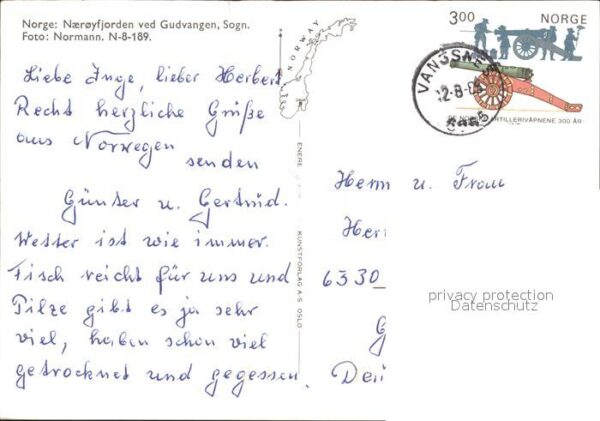 Norge: Nærøyfjorden ved Gudvangen, Sogn.
Foto: Normann. N-8-189.
NORWAY
Liebe Inge, lieber Herbert
Recht herzliche Grüße
aus Norwegen
senden
Günter u. Gertrud.
Wetter ist wie immer.
Fisch reicht für uns und
Pilze gibt es ja sehr
viel, haben schon viel
getrocknet und gegessen.
ENERE
KUNSTFORLAG A·S OSLO
3.00 NORGE
VANGSNES
12-8-
ARTILLERIVÅPNENE 300 ÅR
Herrn u. Frau
Her
6330
G
Deu
privacy protection
Datenschutz